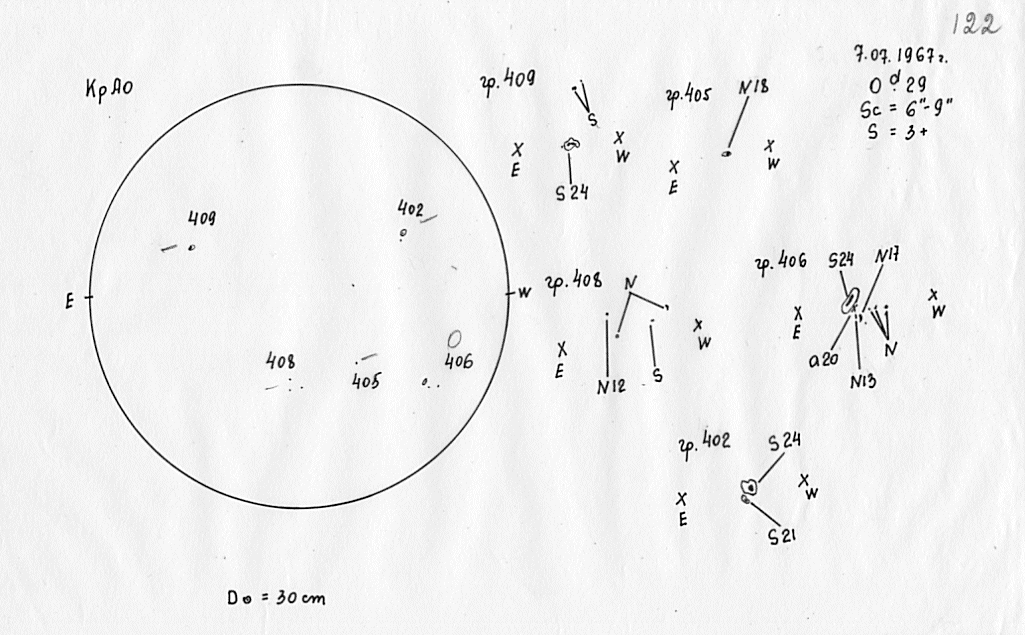 122
7.07.1967г.
0ᵈ.29
Sc = 6"-9"
S = 3+
КрАО
гр.409
S
X
E
X
W
S24
гр.405
N18
X
E
X
W
409
402
E
W
408
405
406
гр.408
N
X
E
X
W
N12
S
гр.406
S24
N17
X
E
X
W
a20
N13
N
гр.402
S24
X
E
X
W
S21
D⊙ = 30cm